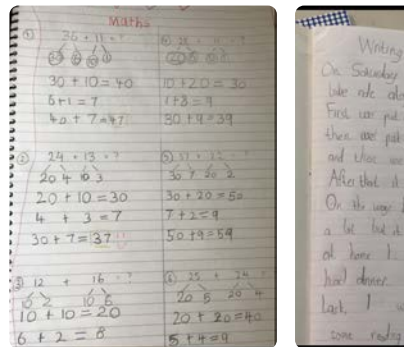 Maths
① 36 + 11 = ?
30 6 10 1
30 + 10 = 40
6 + 1 = 7
40 + 7 = 47
② 24 + 13 = ?
20 4 10 3
20 + 10 = 30
4 + 3 = 7
30 + 7 = 37
③ 12 + 16 = ?
10 2 10 6
10 + 10 = 20
6 + 2 = 8
④
10 + 20 = 30
1 + 8 = 9
30 + 9 = 39
⑤ 37 + 22 = ?
30 7 20 2
30 + 20 = 50
7 + 2 = 9
50 + 9 = 59
⑥ 25 + 24 = ?
20 5 20 4
20 + 20 = 40
5 + 4 = 9
Writing
On Saturday
First we put
then we put
and then we
After that it
On the way
a lot but it
at home I
had dinner
Lack. I
some reading